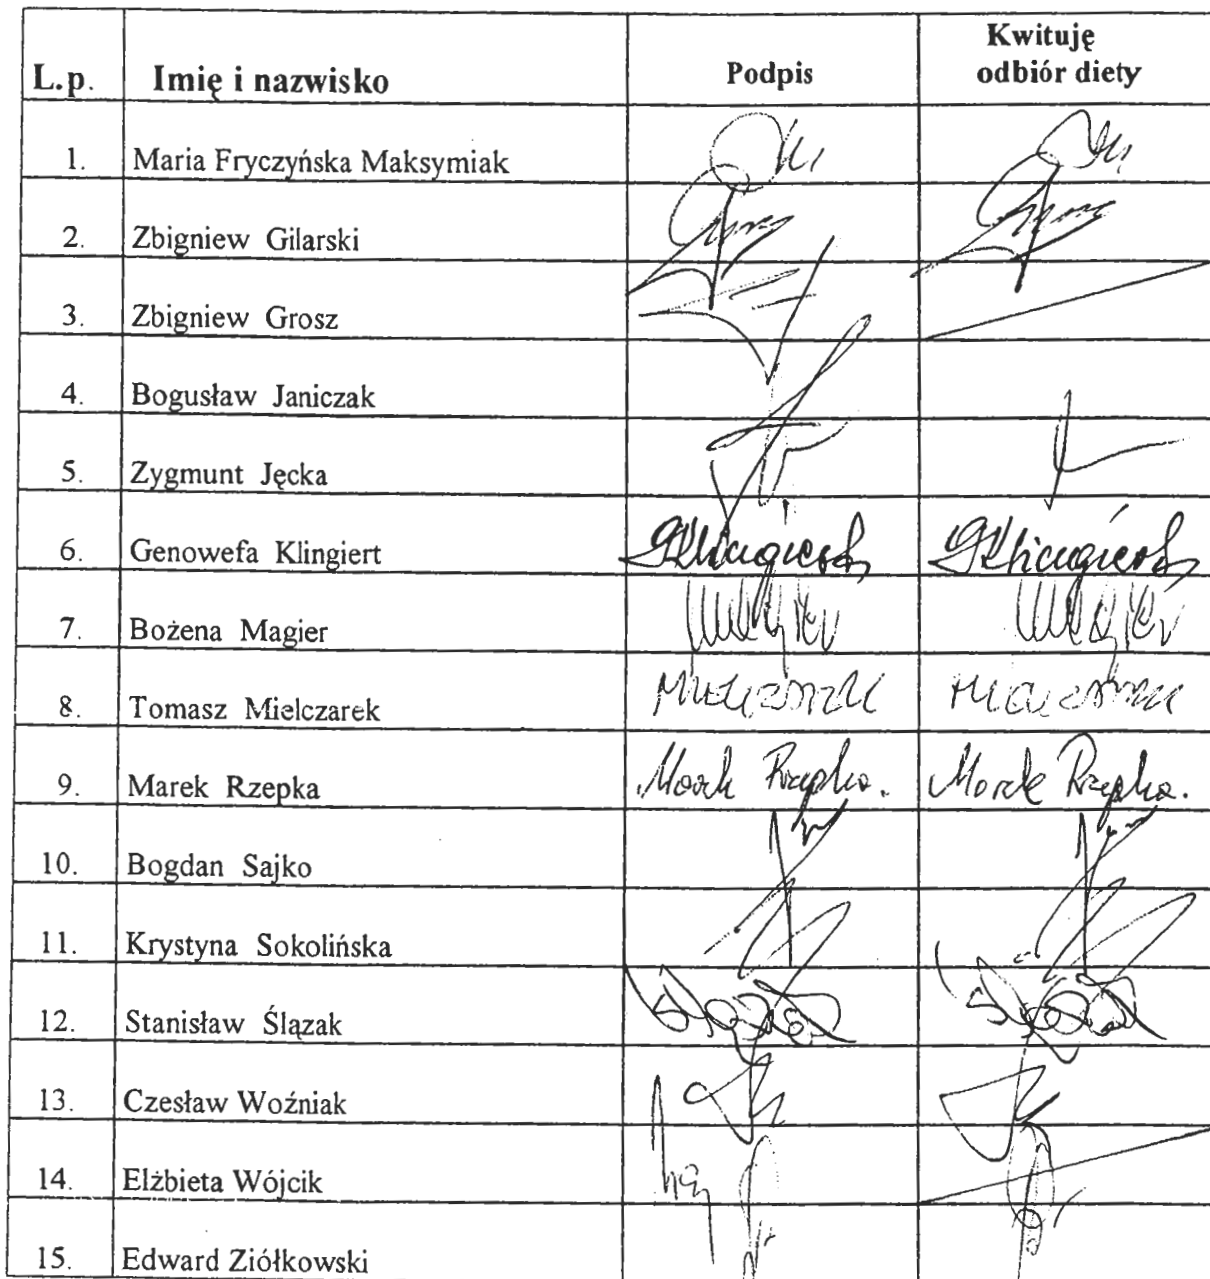 L.p. Imię i nazwisko Podpis Kwituję odbiór diety
1. Maria Fryczyńska Maksymiak
2. Zbigniew Gilarski
3. Zbigniew Grosz
4. Bogusław Janiczak
5. Zygmunt Jęcka
6. Genowefa Klingiert GKlingiert GKlingiert
7. Bożena Magier Magier Magier
8. Tomasz Mielczarek
9. Marek Rzepka Marek Rzepka. Marek Rzepka.
10. Bogdan Sajko
11. Krystyna Sokolińska
12. Stanisław Ślązak
13. Czesław Woźniak
14. Elżbieta Wójcik
15. Edward Ziółkowski